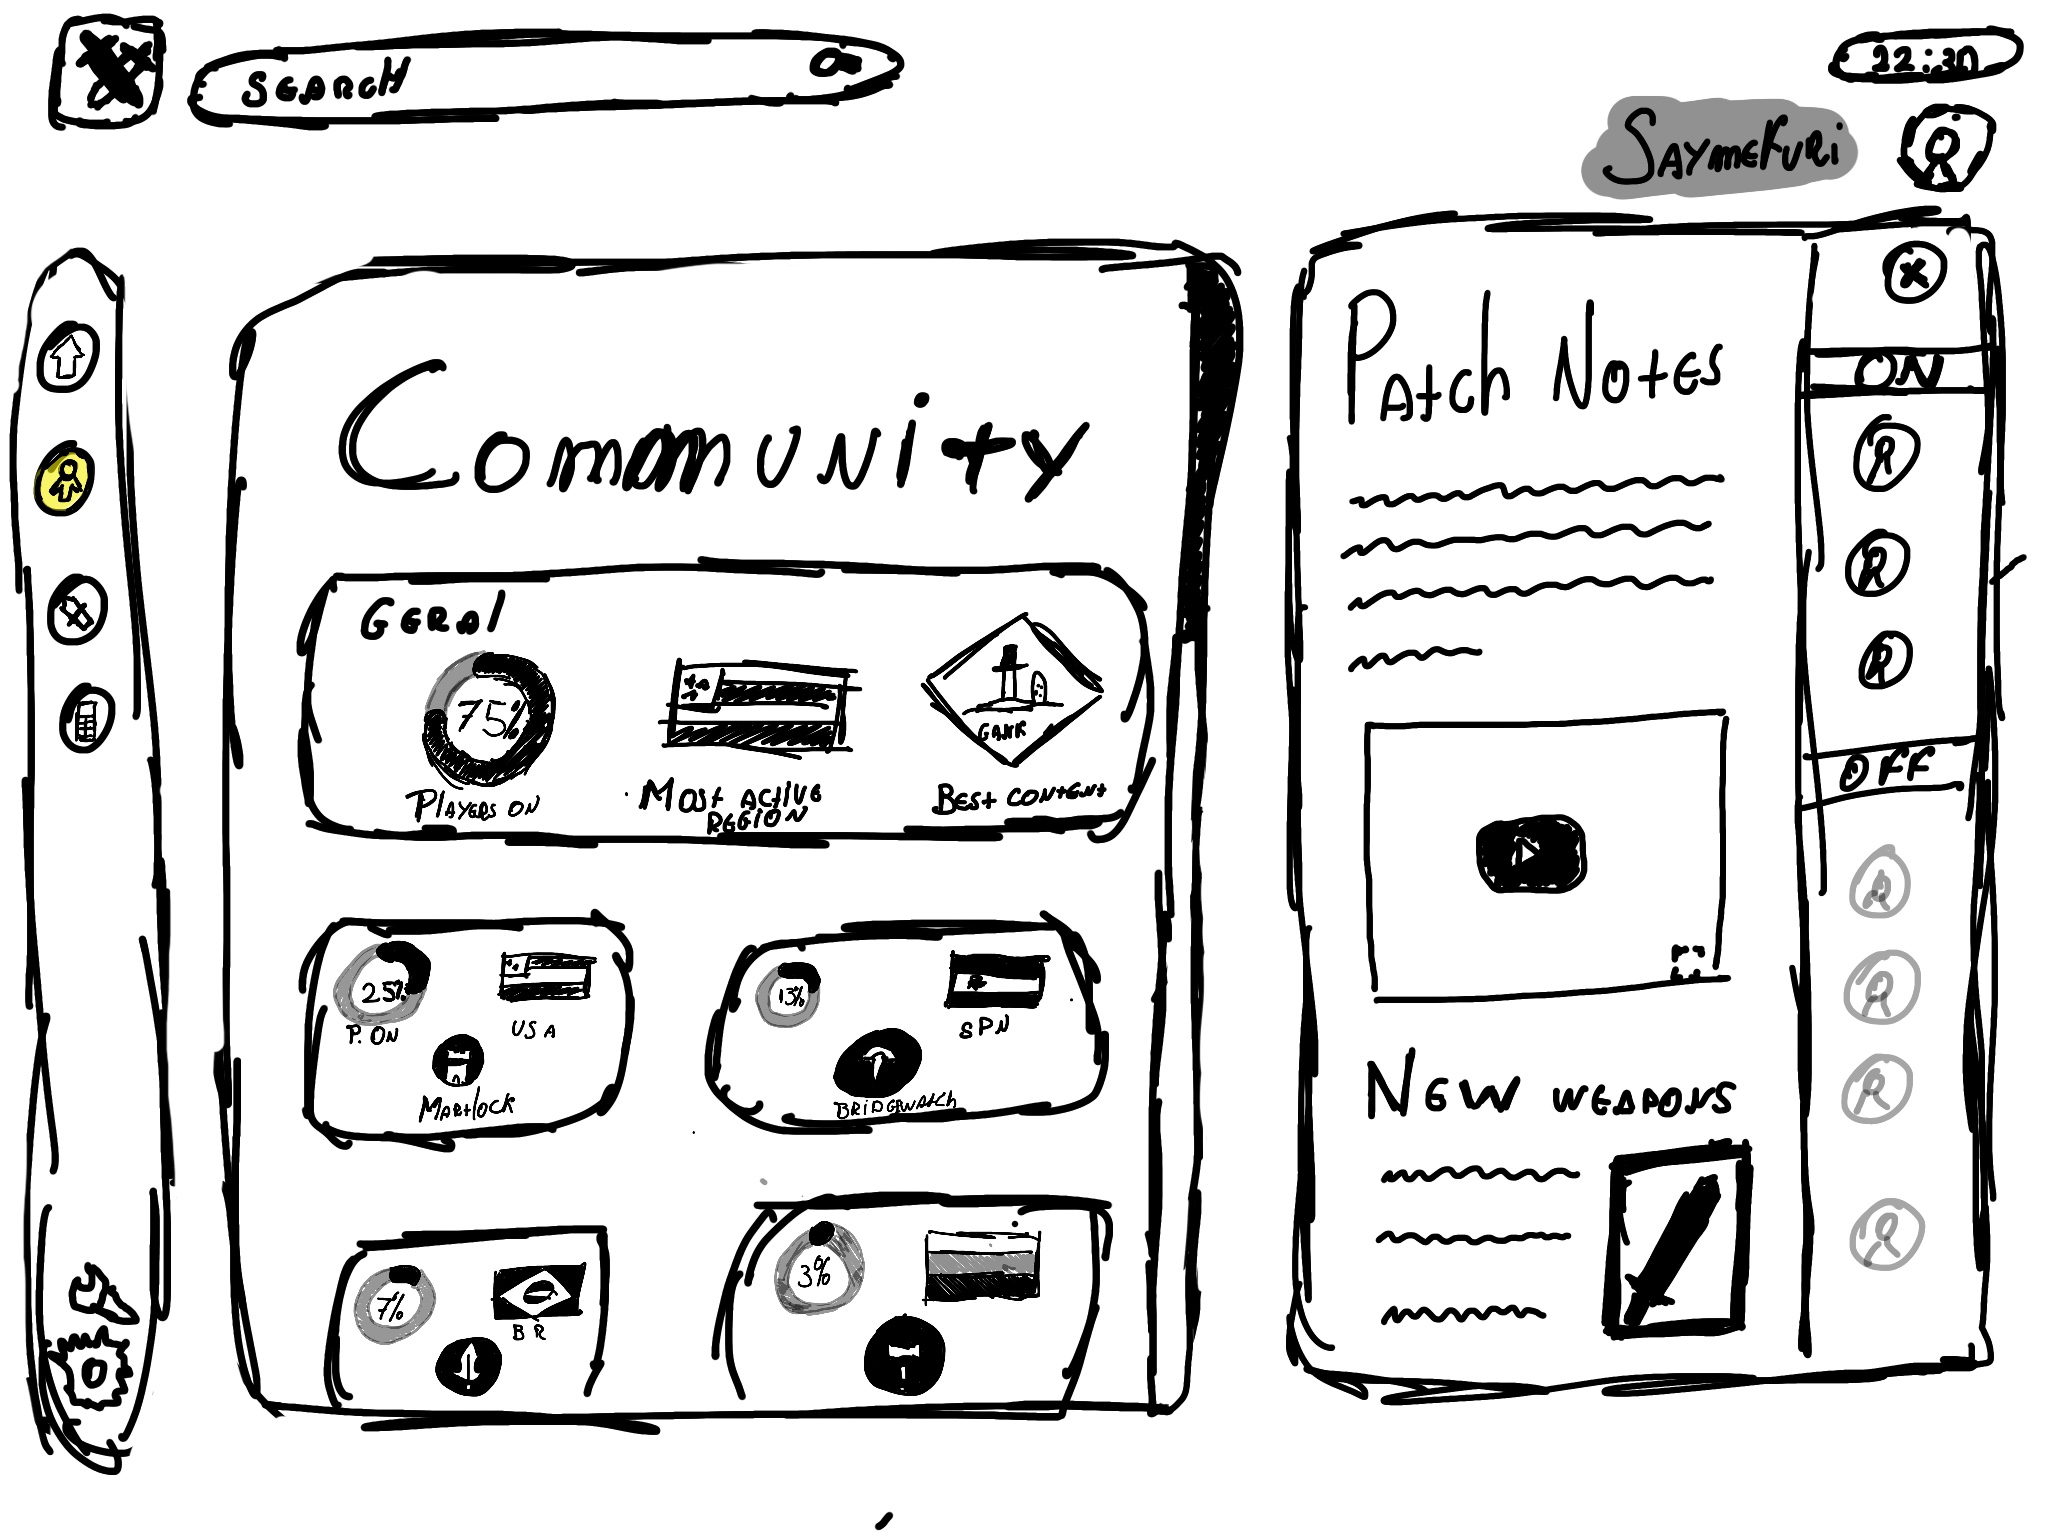 SEARCH
22:30
SAYMEKURI
COMMUNITY
GERAL
75%
PLAYERS ON
MOST ACTIVE
REGION
GANK
BEST CONTENT
25%
P. ON
USA
MARTLOCK
13%
SPN
BRIDGEWATCH
7%
BR
3%
PATCH NOTES
NEW WEAPONS
ON
OFF